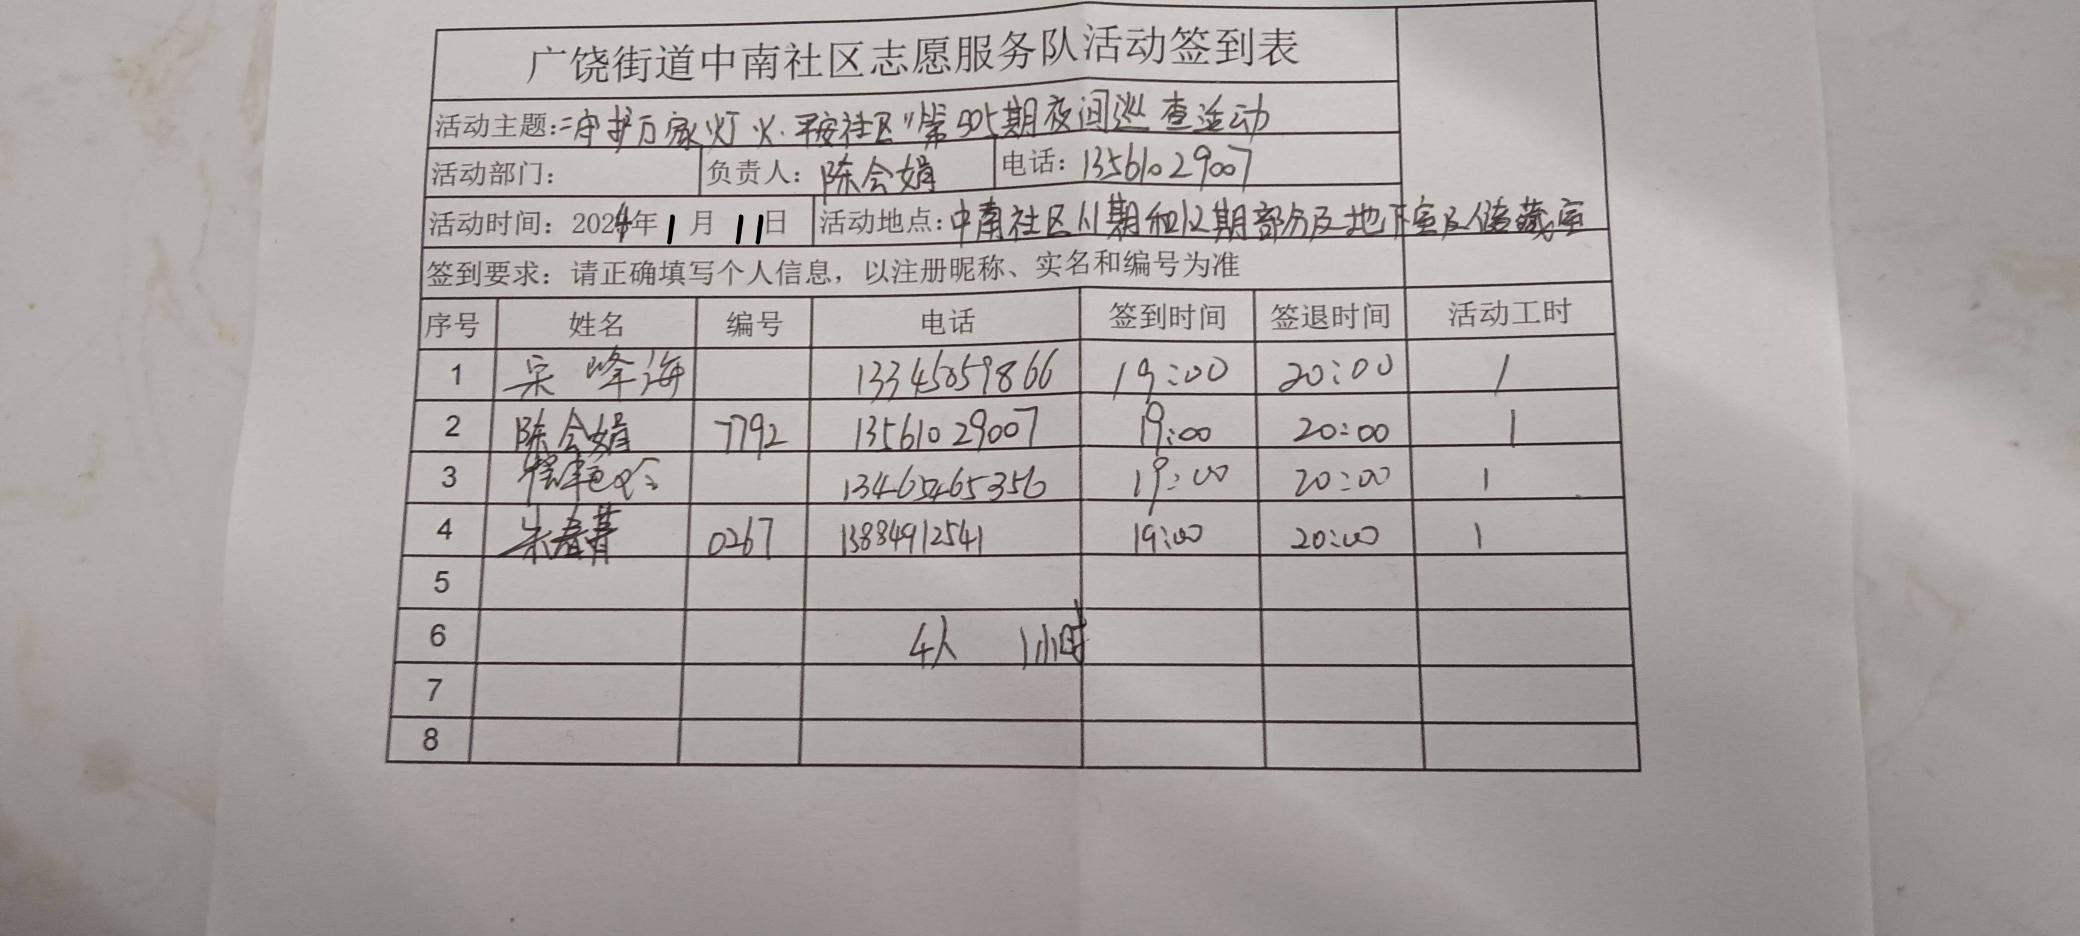 广饶街道中南社区志愿服务队活动签到表
活动主题:"守护万家灯火·平安社区"第305期夜间巡查活动
活动部门: 负责人: 陈会娟 电话: 13561029007
活动时间: 2024年1月11日 活动地点: 中南社区11期和12期部分及地下室及储藏室
签到要求: 请正确填写个人信息，以注册昵称、实名和编号为准
序号 姓名 编号 电话 签到时间 签退时间 活动工时
1 峰海 13345059866 19:00 20:00 1
2 陈会娟 7792 13561029007 19:00 20:00 1
3 13465465356 19:00 20:00 1
4 朱春菁 0267 13884912541 19:00 20:00 1
5
6 4人 1小时
7
8